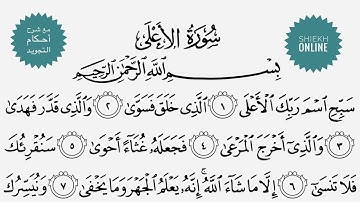 مع شرح
أحكام
التجويد
سُورَةُ الأَعْلَى
SHIEKH
ONLINE
بِسْمِ اللَّهِ الرَّحْمَٰنِ الرَّحِيمِ
سَبِّحِ ٱسْمَ رَبِّكَ ٱلْأَعْلَى ١ ٱلَّذِى خَلَقَ فَسَوَّىٰ ٢ وَٱلَّذِى قَدَّرَ فَهَدَىٰ
٣ وَٱلَّذِىٓ أَخْرَجَ ٱلْمَرْعَىٰ ٤ فَجَعَلَهُۥ غُثَآءً أَحْوَىٰ ٥ سَنُقْرِئُكَ
فَلَا تَنسَىٰٓ ٦ إِلَّا مَا شَآءَ ٱللَّهُ ۚ إِنَّهُۥ يَعْلَمُ ٱلْجَهْرَ وَمَا يَخْفَىٰ ٧ وَنُيَسِّرُكَ